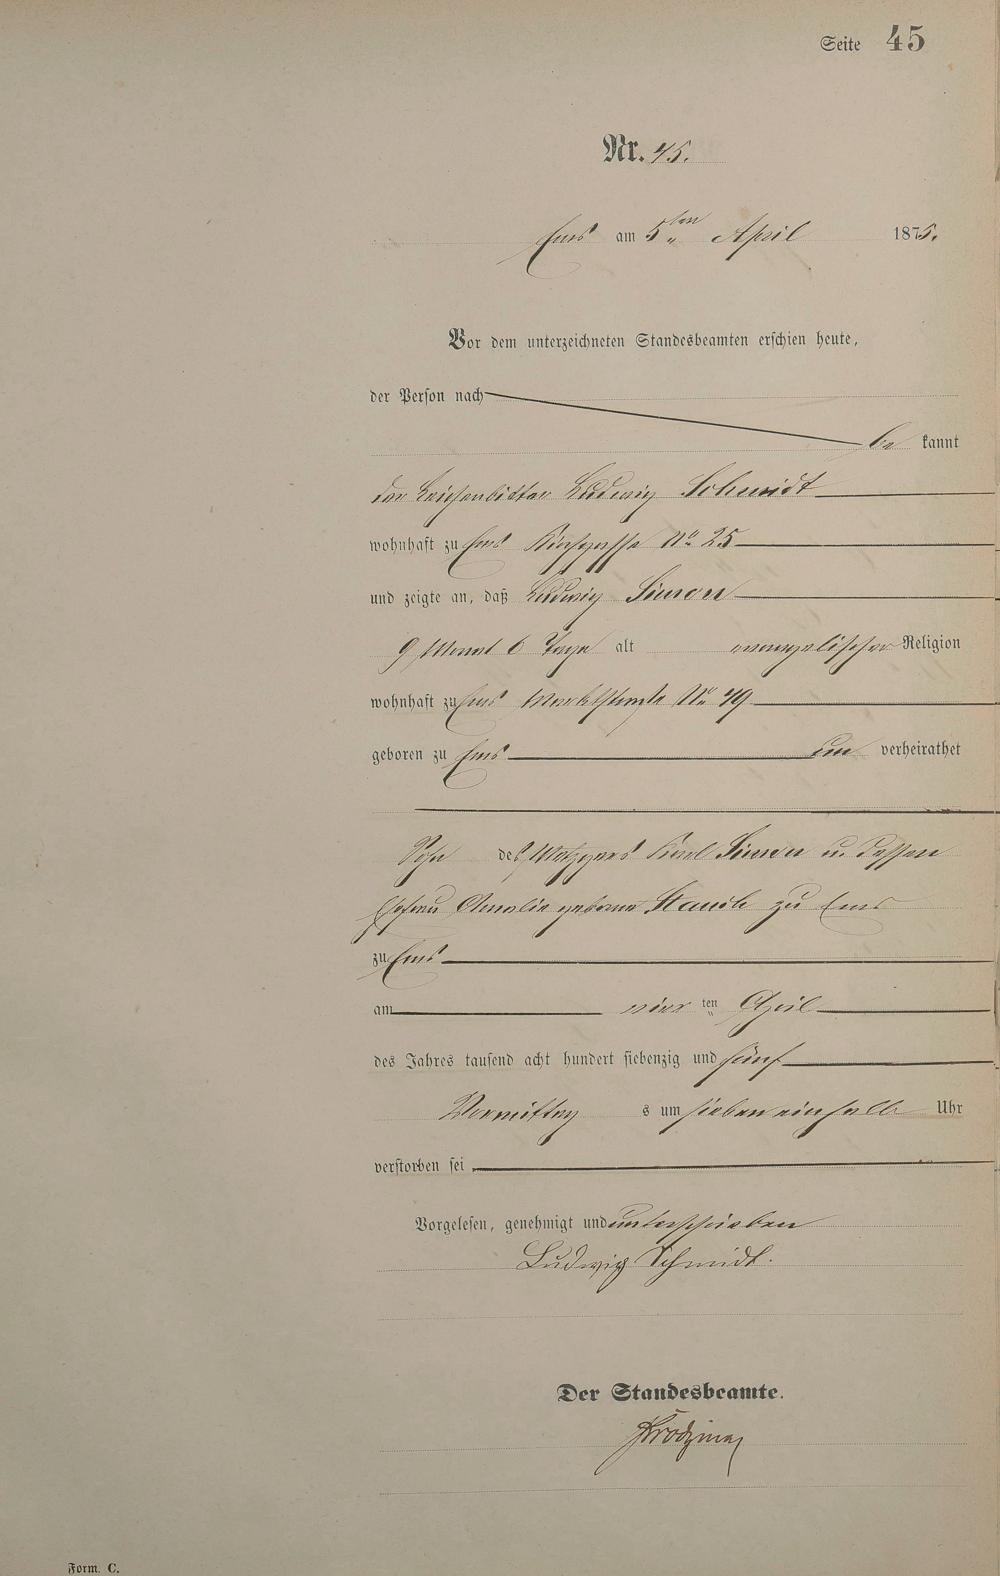 Seite 45
Nr. 45.
Ems am 5ten April 1875.
Vor dem unterzeichneten Standesbeamten erschien heute,
der Person nach
be kannt
der Leichenbitter Ludwig Schmidt
wohnhaft zu Ems Kirchgasse No 25
und zeigte an, daß Ludwig Simon
9 Monat 6 Tage alt evangelischer Religion
wohnhaft zu Ems Marktstraße No 49
geboren zu Ems un verheirathet
Sohn des Metzgers Karl Simon u. dessen
Ehefrau Amalie geborne zu Ems
zu Ems
am vier ten April
des Jahres tausend acht hundert siebenzig und fünf
Vormittag s um sieben einhalb Uhr
verstorben sei
Vorgelesen, genehmigt und unterschrieben
Ludwig Schmidt.
Der Standesbeamte.
Form. C.